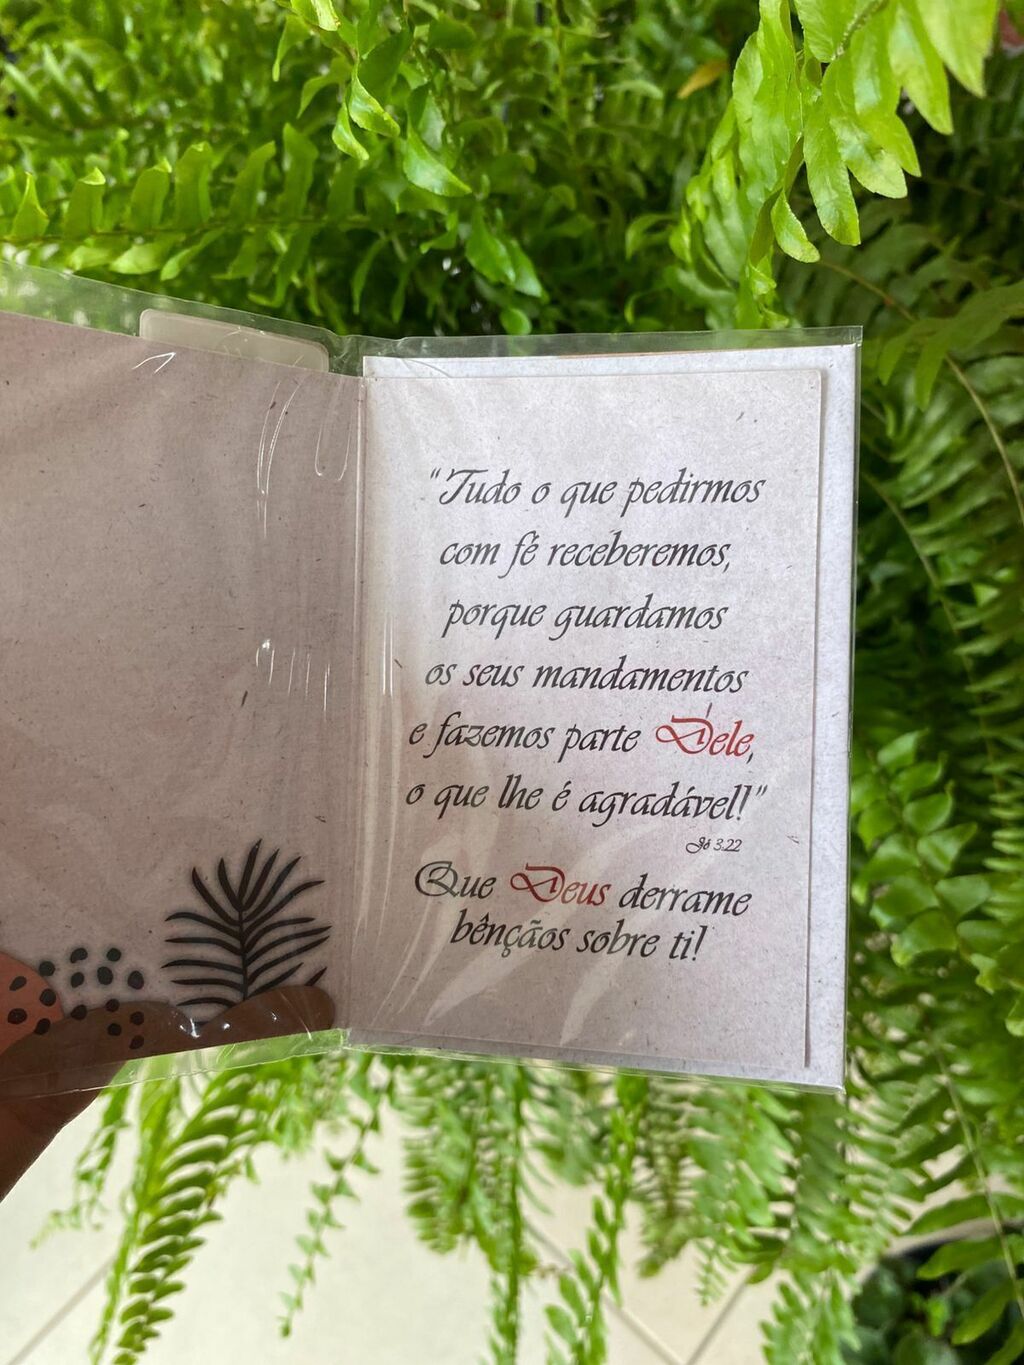 "Tudo o que pedirmos
com fé receberemos,
porque guardamos
os seus mandamentos
e fazemos parte Dele,
o que lhe é agradável!"
Jó 3.22
Que Deus derrame
bênçãos sobre ti!